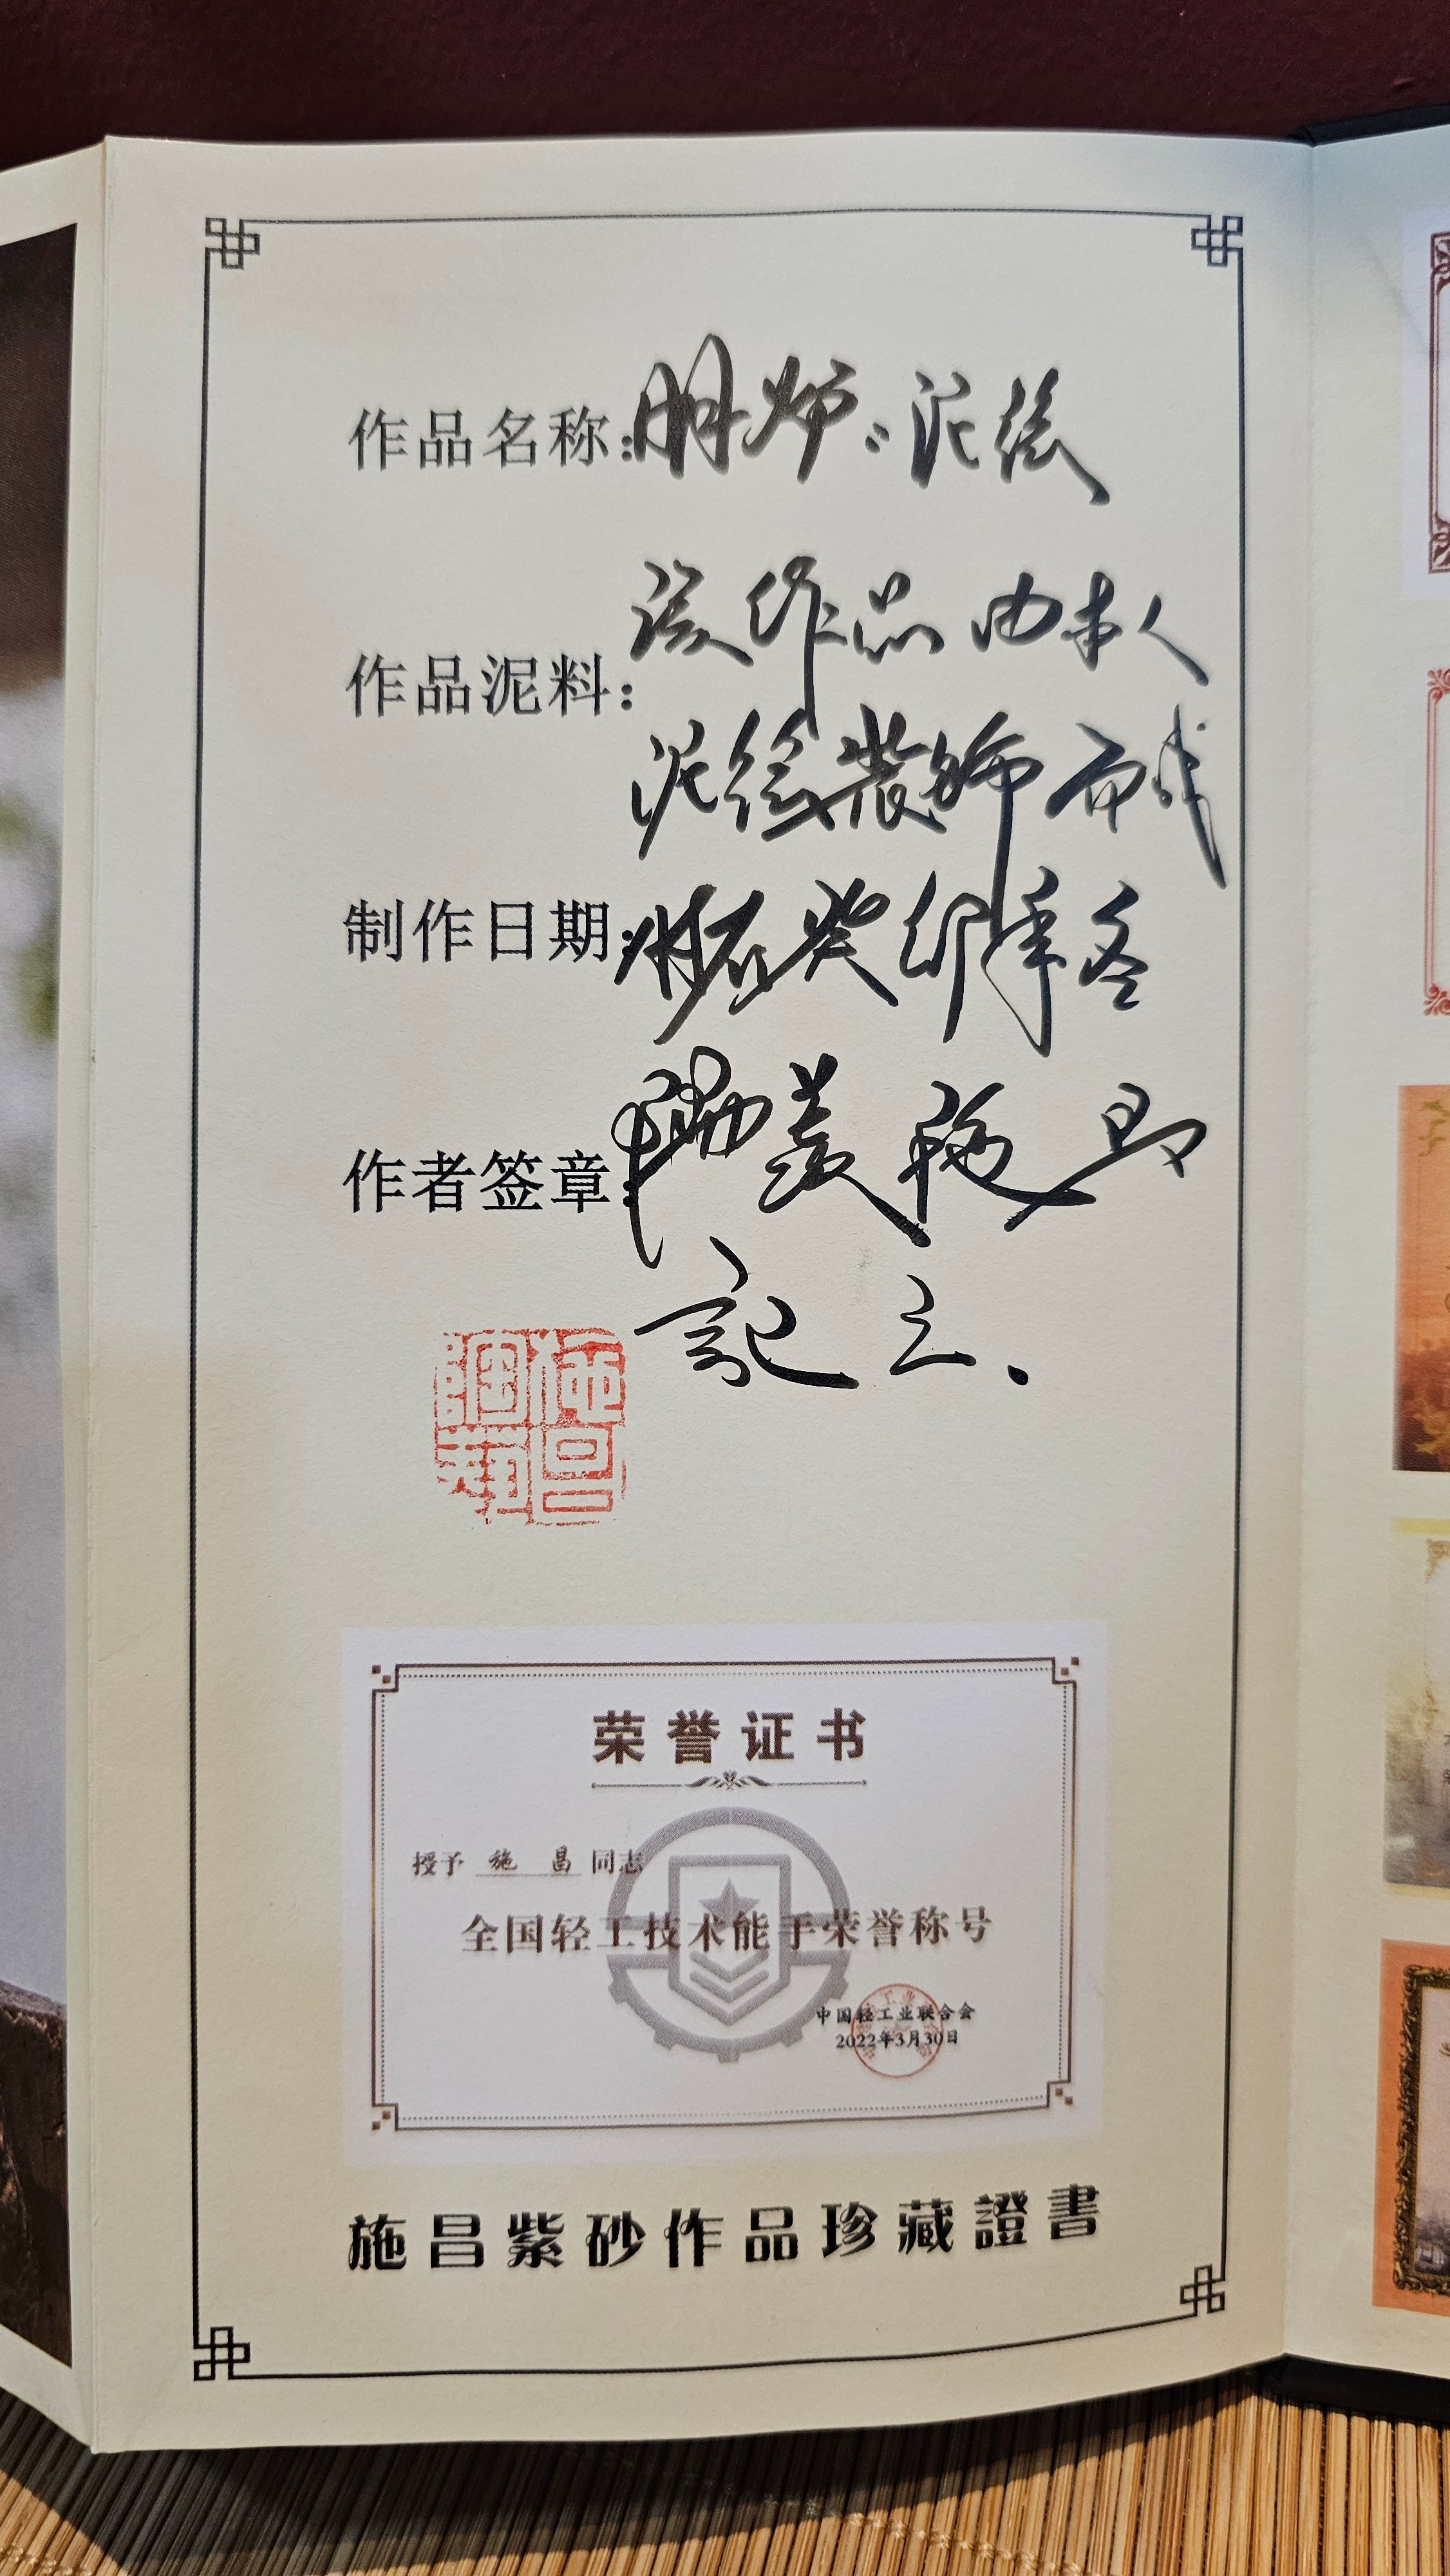 作品名称：明炉：泥绘
作品泥料：该作品由本人
泥绘装饰而成
制作日期：癸卯年冬
作者签章：陶美 施昌
记之.
施昌
荣誉证书
授予 施 昌 同志
全国轻工技术能手荣誉称号
中国轻工业联合会
2022年3月30日
施昌紫砂作品珍藏證書